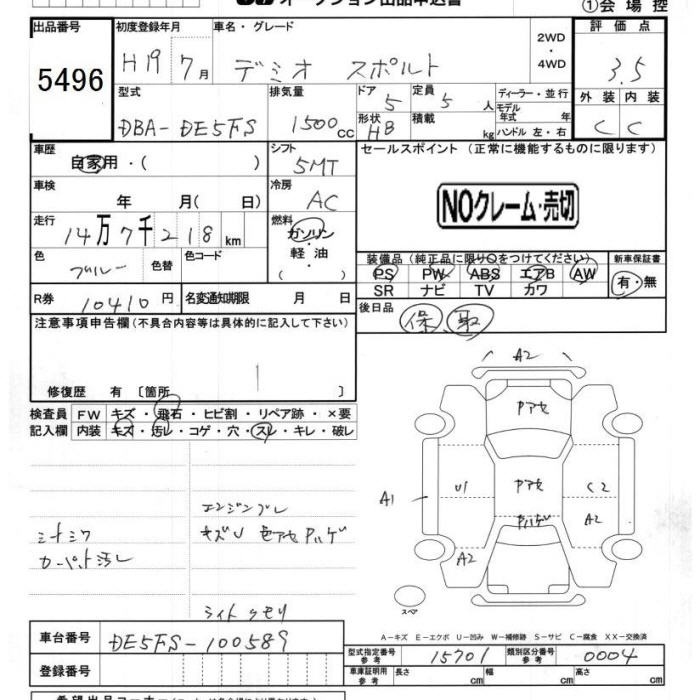 オークション出品申込書 ①会場控
出品番号 初度登録年月 車名・グレード 2WD・4WD 評価点
5496 H19 7月 デミオ スポルト 3.5
型式 排気量 ドア 定員 ディーラー・並行 外装 内装
DBA-DE5FS 1500cc 5 5人 モデル年式 年 C C
形状 積載 ハンドル 左・右
HB kg
車歴 シフト セールスポイント (正常に機能するものに限ります)
自家用・( ) 5MT
車検 冷房
年 月( 日) AC NOクレーム・売切
走行 燃料
14万7千218km ガソリン・軽油・( )
色 色替 色コード 装備品(純正品に限り○をつけてください) 新車保証書
ブルー PS PW ABS エアB AW 有・無
SR ナビ TV カワ
R券 10410円 名変通知期限 月 日 後日品
保 取
注意事項申告欄(不具合内容等は具体的に記入して下さい)
修復歴 有 [箇所 ]
検査員 FW キズ・飛石・ヒビ割・リペア跡・×要
記入欄 内装 キズ・汚レ・コゲ・穴・スレ・キレ・破レ
A2
Pアセ
A1 U1 Pアセ C2
Pハゲ A2
A2
スペア
エンジンブレ
シートシワ キズU 色アセ Pハゲ
カーペット汚レ
ライトクモリ
A-キズ E-エクボ U-凹み W-補修跡 S-サビ C-腐食 XX-交換済
車台番号 DE5FS-100589
型式指定番号 参考 15701 類別区分番号 参考 0004
登録番号
車庫証明用 参考 長さ cm 幅 cm 高さ cm